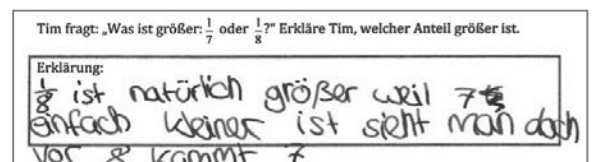 Tim fragt: „Was ist größer: 1/7 oder 1/8?" Erkläre Tim, welcher Anteil größer ist.
Erklärung:
1/8 ist natürlich größer weil 7
einfach kleiner ist sieht man doch
vor 8 kommt 7